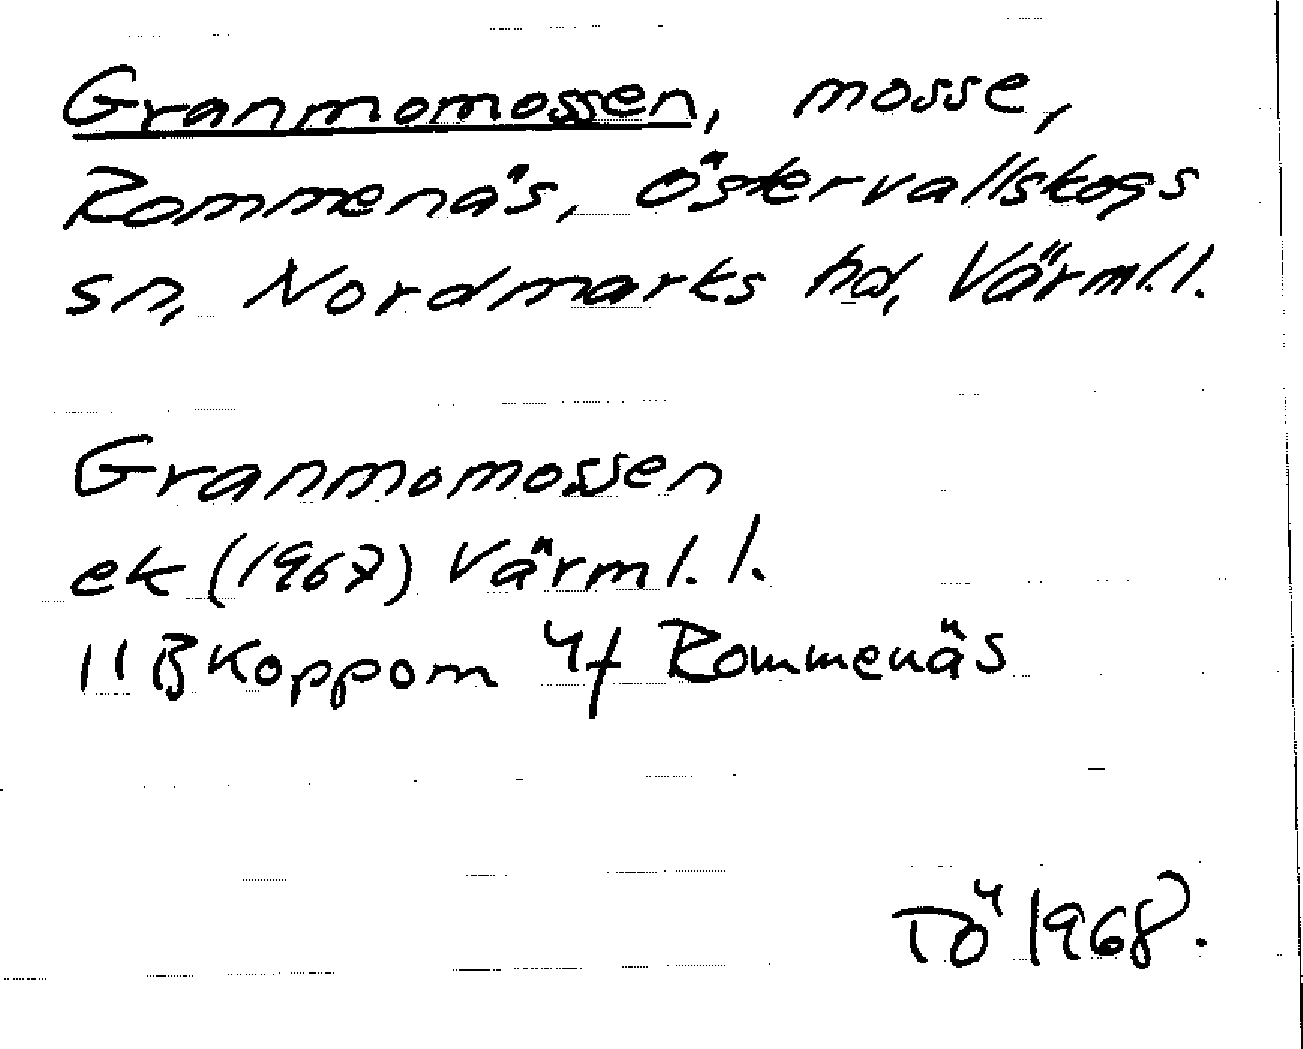 Granmomossen, mosse,
Rommenäs, Östervallskogs
sn, Nordmarks hd, Värml. l.
Granmomossen
ek (1967) Värml. l.
11B Koppom 4f Rommenäs
TÖ 1968.